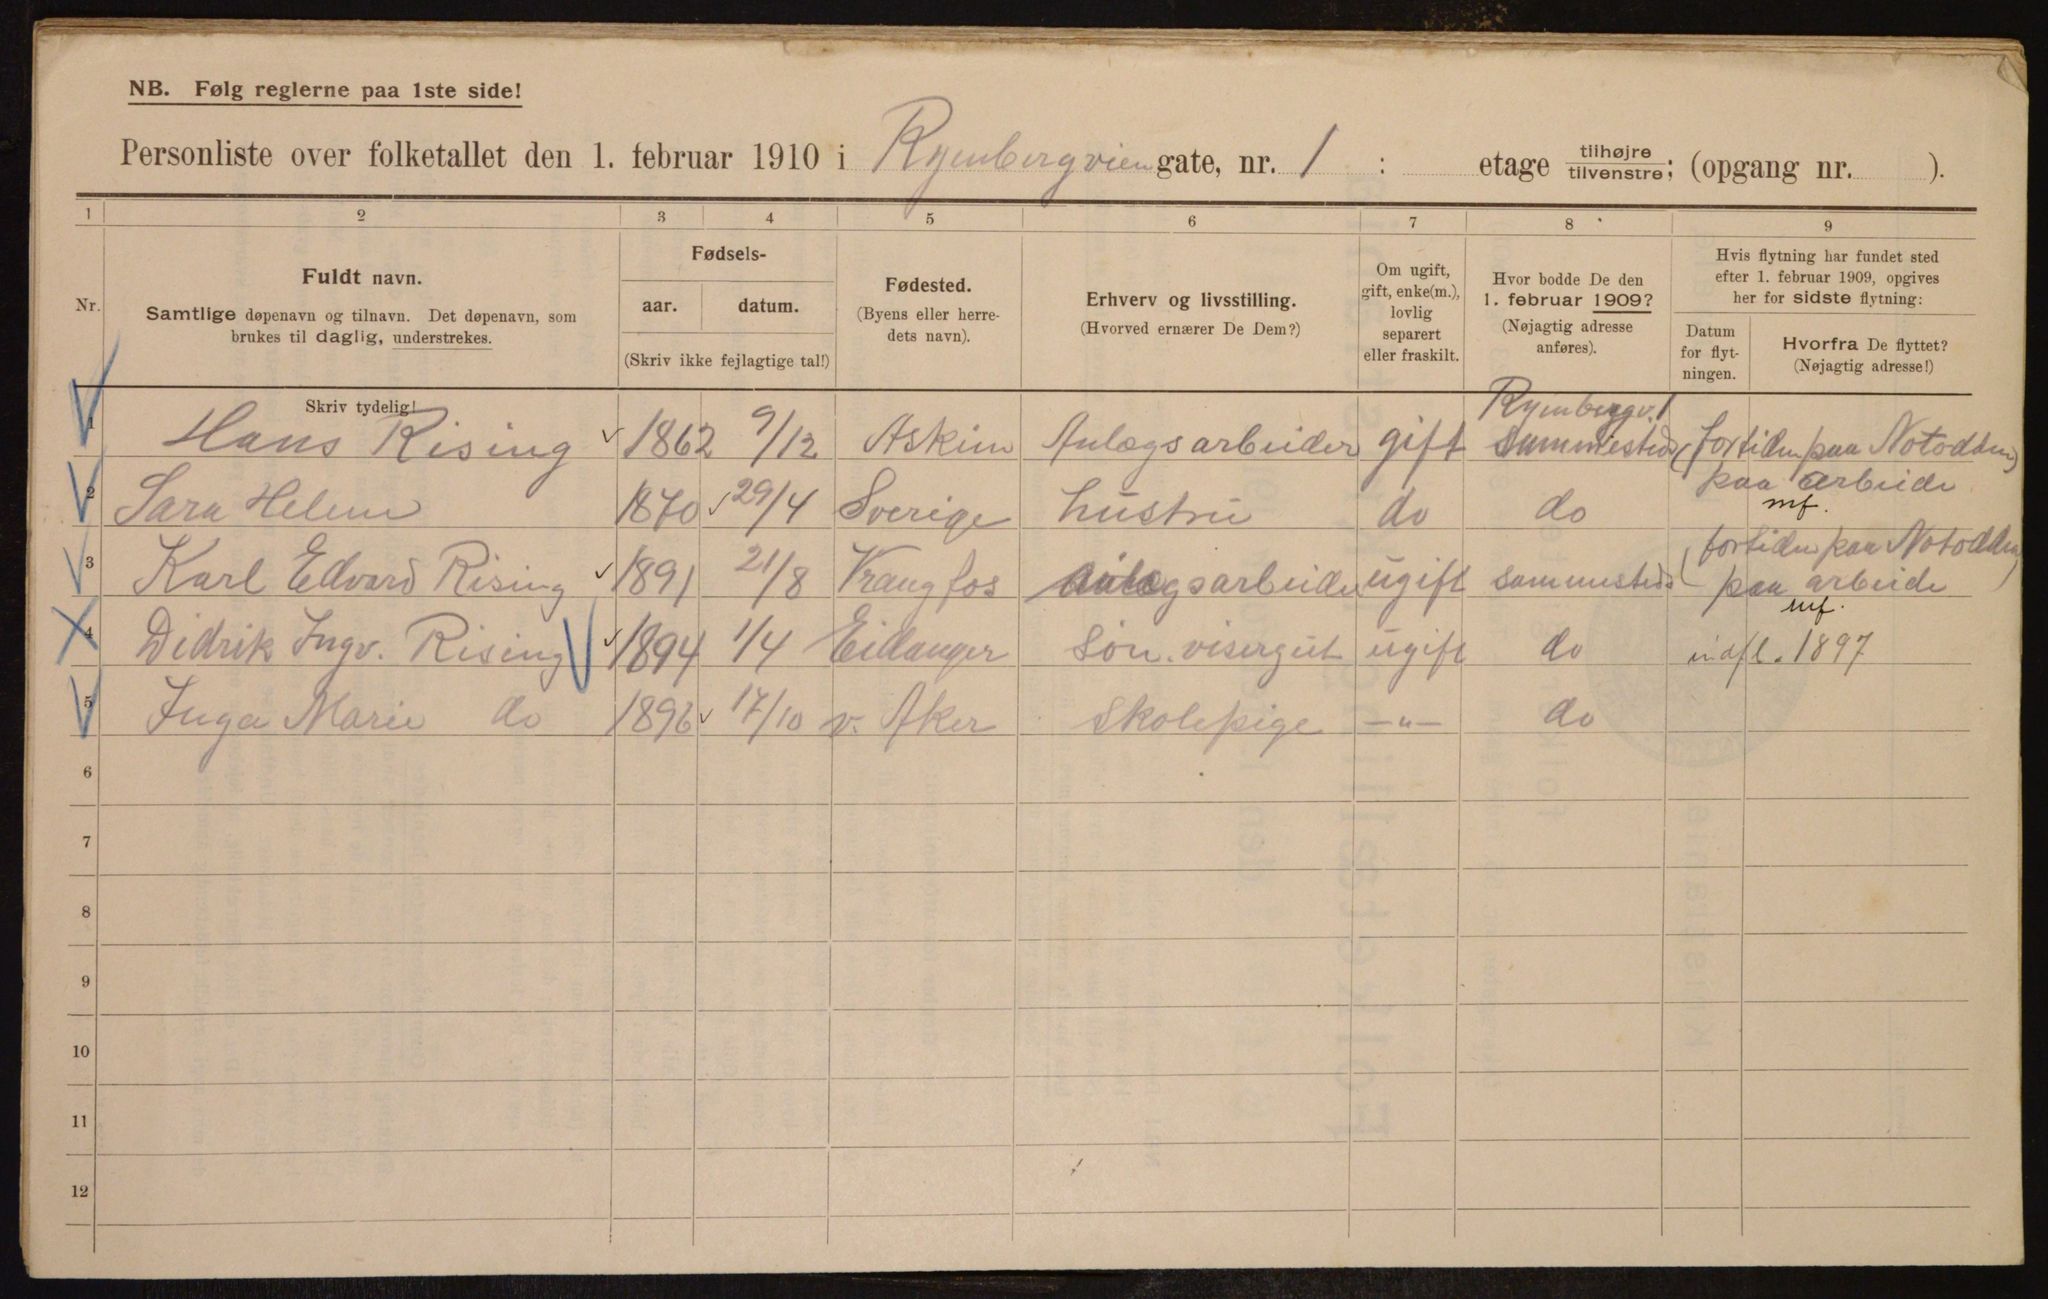 NB. Følg reglerne paa 1ste side!
Personliste over folketallet den 1. februar 1910 i Rynbergvien gate, nr. 1 : etage tilhøjre/tilvenstre; (opgang nr. ).
1 2 3 4 5 6 7 8 9
Nr.
Fuldt navn.
Samtlige døpenavn og tilnavn. Det døpenavn, som
brukes til daglig, understrekes.
Skriv tydelig!
Fødsels-
aar. datum.
(Skriv ikke fejlagtige tal!)
Fødested.
(Byens eller herre-
dets navn).
Erhverv og livsstilling.
(Hvorved ernærer De Dem?)
Om ugift,
gift, enke(m.),
lovlig
separert
eller fraskilt.
Hvor bodde De den
1. februar 1909?
(Nøjagtig adresse
anføres).
Hvis flytning har fundet sted
efter 1. februar 1909, opgives
her for sidste flytning:
Datum
for flyt-
ningen.
Hvorfra De flyttet?
(Nøjagtig adresse!)
Rynbergv. 1
1 Hans Rising 1862 9/12 Askim Anlægsarbeider gift sammesteds (fortiden paa Notodden)
paa arbeide
mf.
2 Sara Helene 1870 29/4 Sverige hustru do do
(fortiden paa Notodden)
3 Karl Edvard Rising 1891 21/8 Vrangfos anlægsarbeider ugift sammesteds paa arbeide
mf.
4 Didrik Ingv. Rising 1894 1/4 Eidanger Søn. visergut ugift do indfl. 1897
5 Inga Marie do 1896 17/10 v. Aker Skolepige —„— do
6
7
8
9
10
11
12